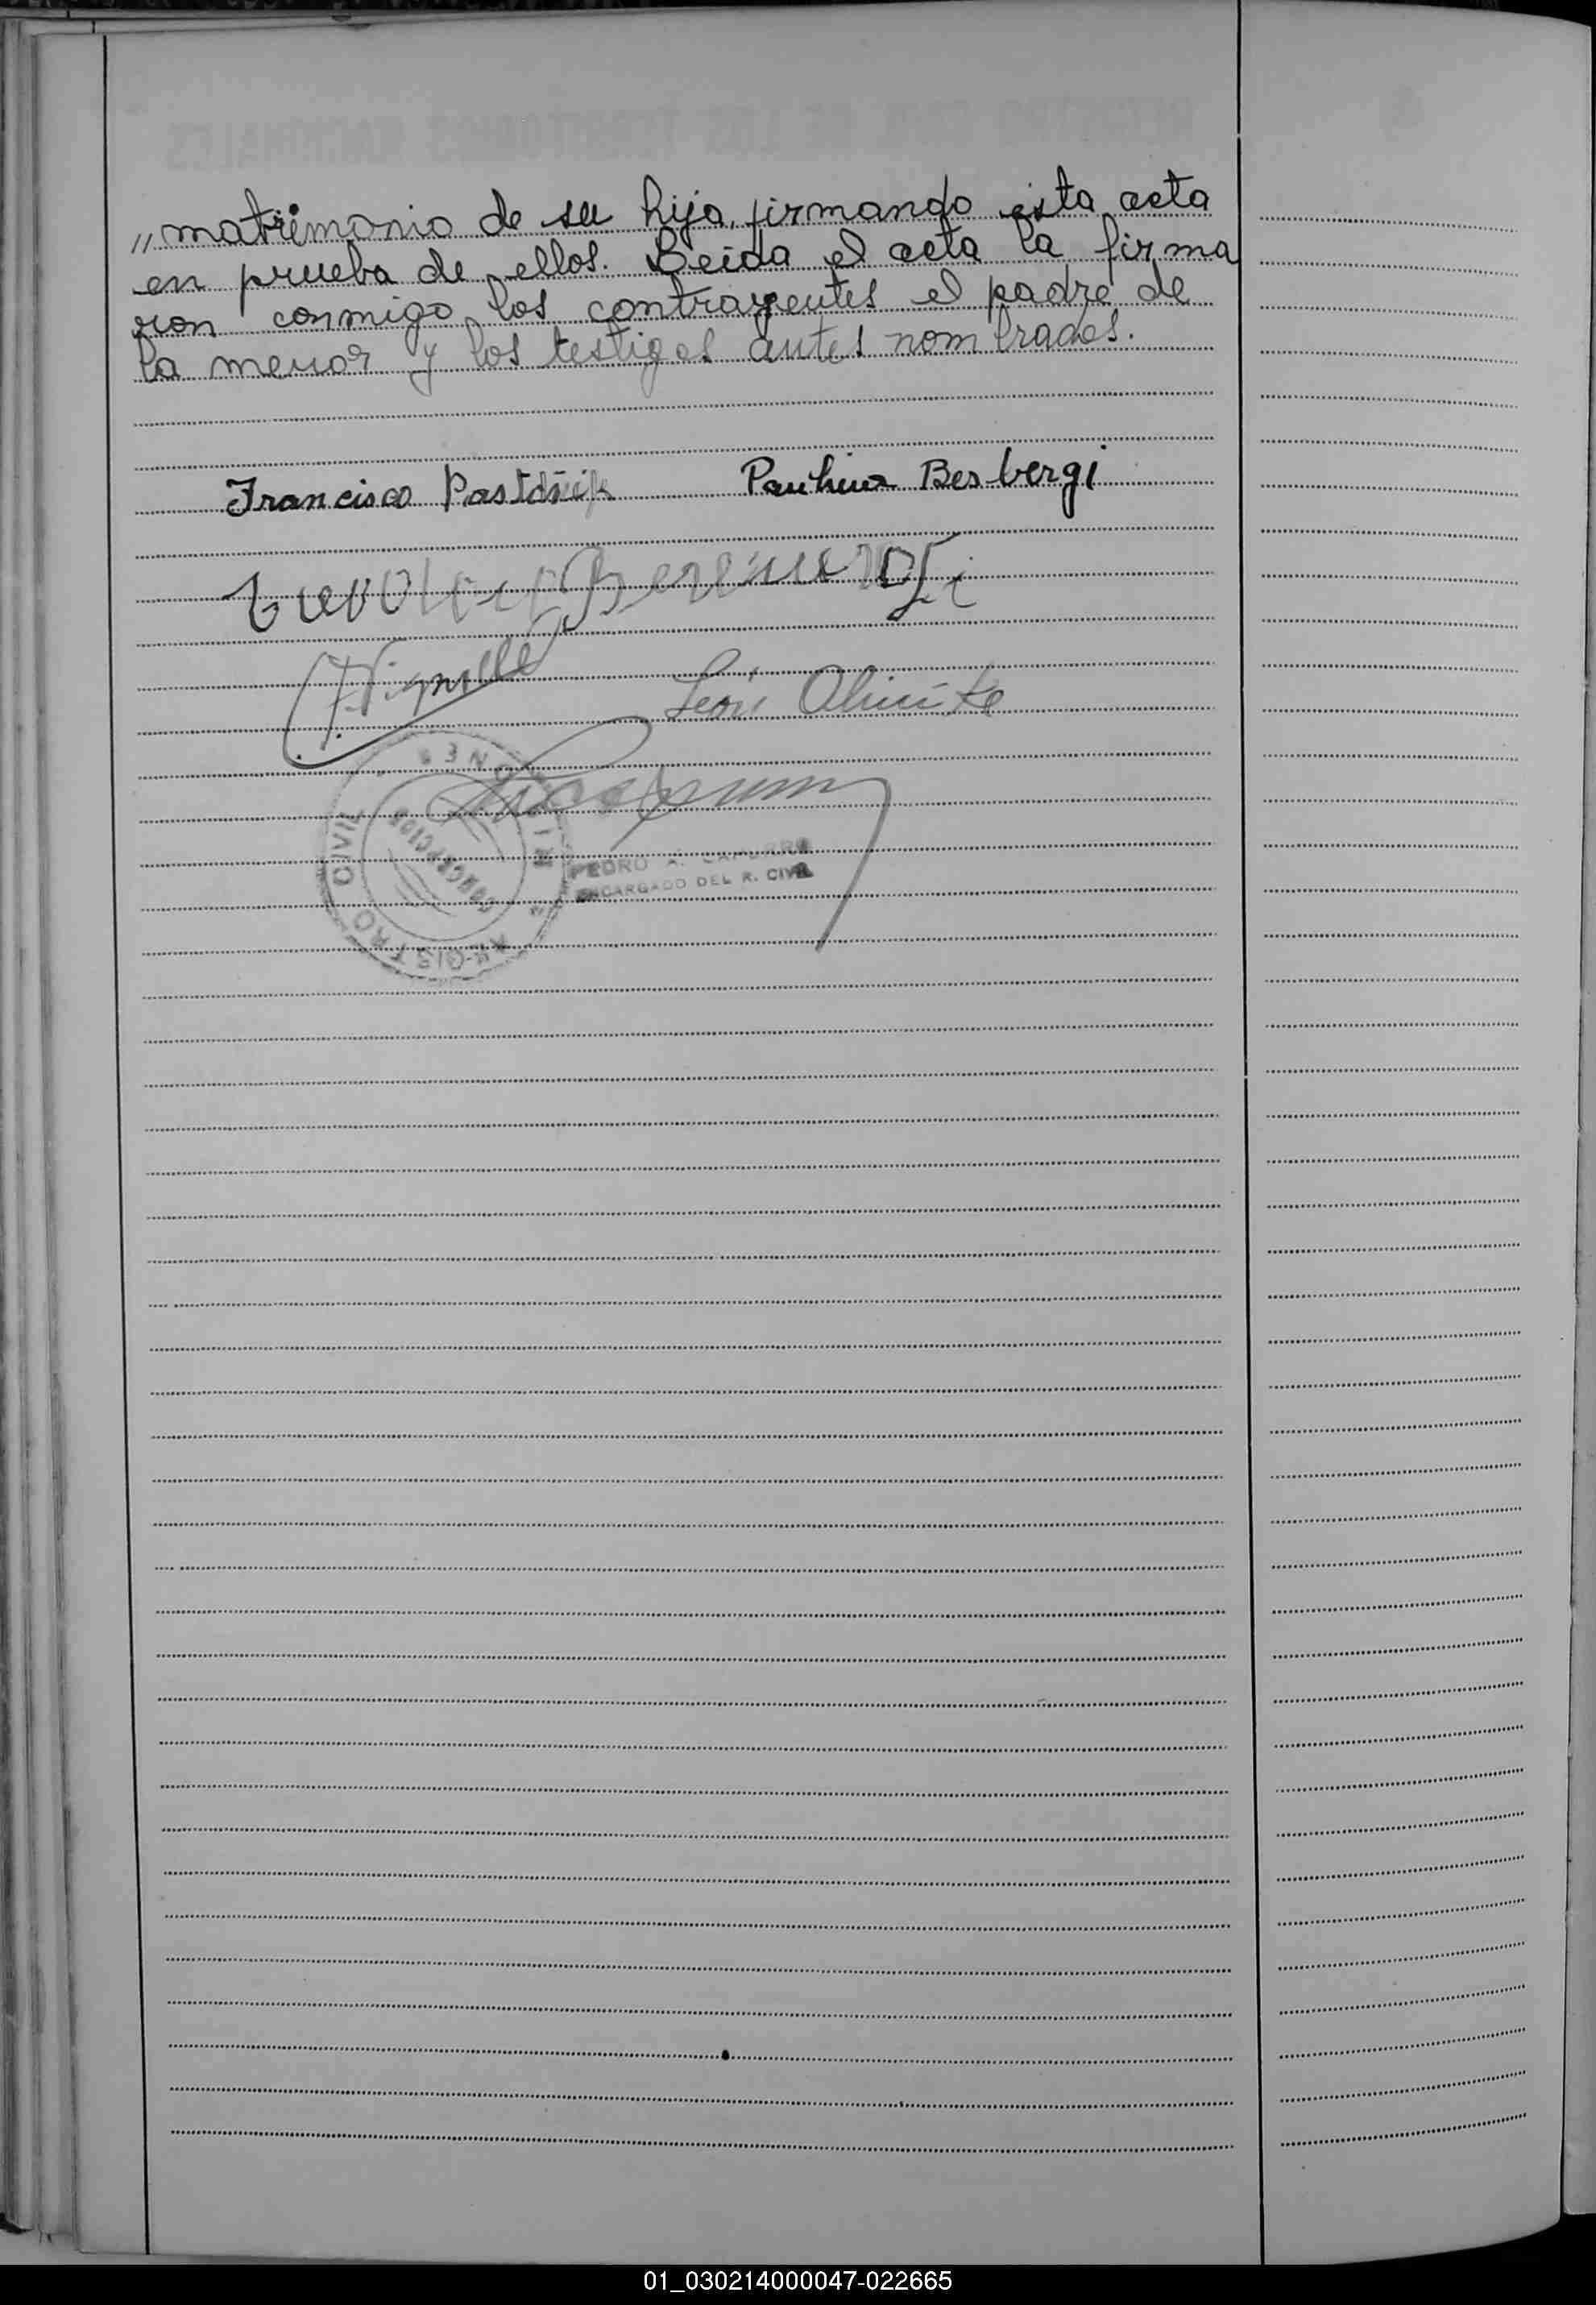 „ matrimonio de su hija, firmando esta acta
en prueba de ellos. Leida el acta la firma
ron conmigo los contrayentes el padre de
la menor y los testigos antes nombrados.
Francisco Paulina Besbergi
León
MISIONES
REGISTRO CIVIL
CONCEPCION
PEDRO A. CAPURRO
ENCARGADO DEL R. CIVIL
01_030214000047-022665